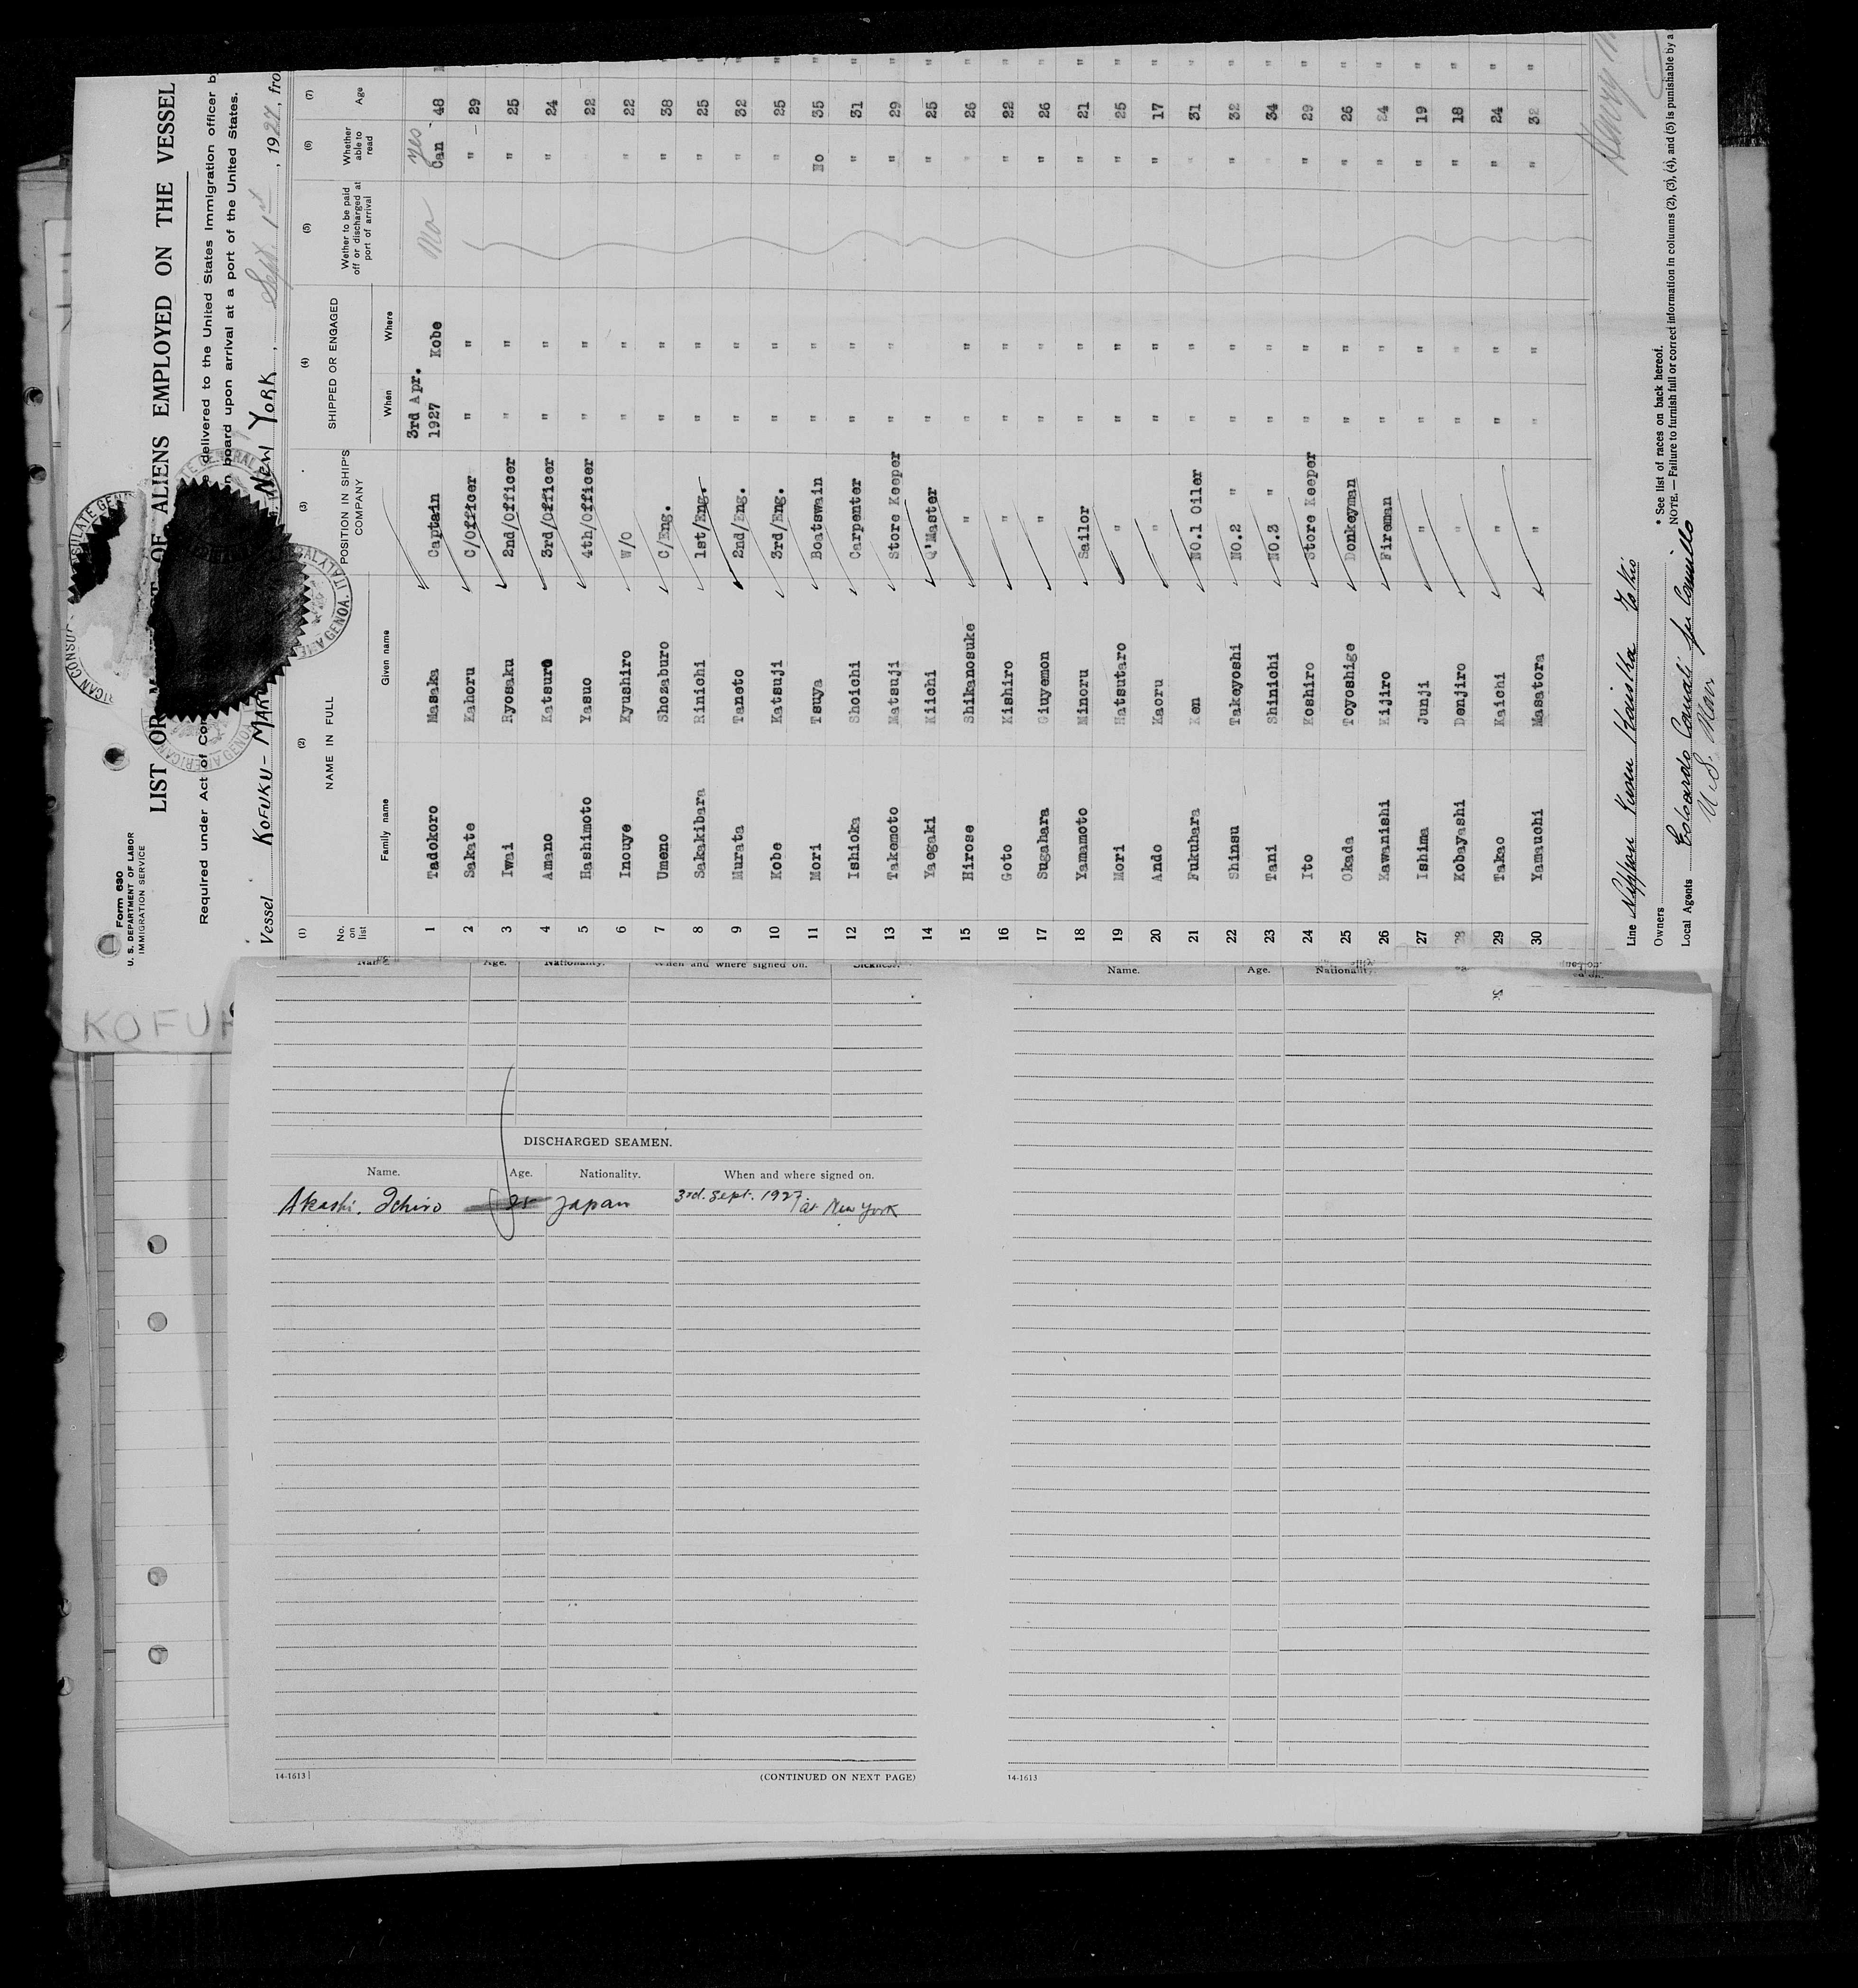 Form 630
U. S. DEPARTMENT OF LABOR
IMMIGRATION SERVICE
LIST OR OF ALIENS EMPLOYED ON THE VESSEL
Required under Act of delivered to the United States Immigration officer b
board upon arrival at a port of the United States.
Vessel KOFUKU-MARU NEW YORK, Sept. 1st, 1927, fro
(1) (2) (3) (4) (5) (6) (7)
No. on list NAME IN FULL POSITION IN SHIP'S COMPANY SHIPPED OR ENGAGED Wether to be paid off or discharged at port of arrival Whether able to read Age
Family name Given name When Where
3rd Apr. No yes
1 Tadokoro Masaka Captain 1927 Kobe Can 48
2 Sakate Kahoru C/Officer " " " 29
3 Iwai Ryosaku 2nd/Officer " " " 25
4 Amano Katsuro 3rd/Officer " " " 24
5 Hashimoto Yasuo 4th/Officer " " " 22
6 Inouye Kyushiro W/O " " " 22
7 Umeno Shozaburo C/Eng. " " " 38
8 Sakakibara Rinichi 1st/Eng. " " " 25
9 Murata Taneto 2nd/Eng. " " " 32
10 Kobe Katsuji 3rd/Eng. " " " 25
11 Mori Tsuya Boatswain " " No 35
12 Ishioka Shoichi Carpenter " " " 31
13 Takemoto Matsuji Store Keeper " " " 29
14 Yaegaki Kiichi Q'Master " " 25
15 Hirose Shikanosuke " " " " 26
16 Goto Kishiro " " " " 22
17 Sugahara Giuyemon " " " " 26
18 Yamamoto Minoru Sailor " " " 21
19 Mori Hatsutaro " " " " 25
20 Ando Kaoru " " " " 17
21 Fukuhara Ken No.1 Oiler " " " 31
22 Shinsu Takeyoshi No.2 " " " " 32
23 Tani Shinichi No.3 " " " " 34
24 Ito Koshiro Store Keeper " " " 29
25 Okada Toyoshige Donkeyman " " " 26
26 Kawanishi Kijiro Fireman " " " 24
27 Ishima Junji " " " " 19
28 Kobayashi Denjiro " " " " 18
29 Takao Kaichi " " " " 24
30 Yamauchi Masatora " " " " 32
Line Nippon Yusen Kaisha Tokio
Owners
* See list of races on back hereof.
NOTE. — Failure to furnish full or correct information in columns (2), (3), (4), and (5) is punishable by a
Local Agents Edoardo Canali fu Camillo
Henry
AMERICAN CONSULATE GEN
GENOA, ITALY
KOFUK
Name. Age. Nationality. When and where signed on. Sickness.
DISCHARGED SEAMEN.
Name. Age. Nationality. When and where signed on.
Akashi, Ichiro 25 Japan 3rd. Sept. 1927. at New York
14-1613
(CONTINUED ON NEXT PAGE)
Name. Age. Nationality.
14-1613